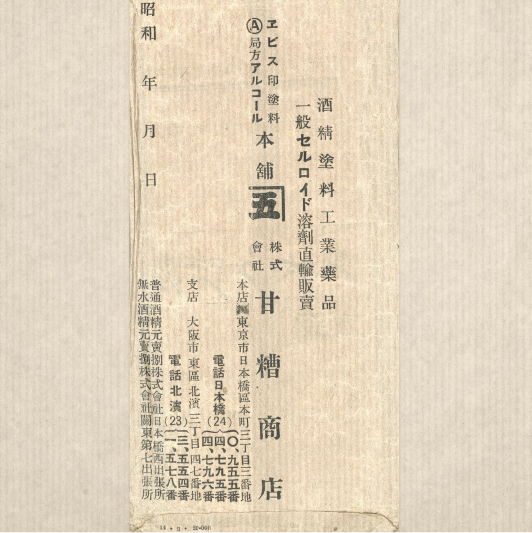 酒精塗料工業藥品
一般セルロイド溶劑直輸販賣
ヱビス印塗料
Ⓐ局方アルコール
本舖
五
株式會社
甘糟商店
本店 東京市日本橋區本町三丁目三番地
電話日本橋(24)
〇、九五五番
四、七九五番
四、七九六番
支店 大阪市東區北濱三丁目四七番地
電話北濱(23)
三、五五四番
一、五七八番
普通酒精元賣捌株式會社日本橋西出張所
無水酒精元賣捌株式會社關東第七出張所
昭和 年 月 日